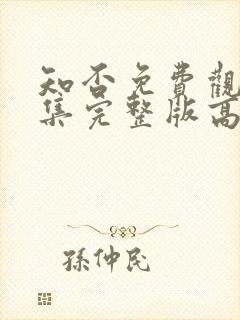 知否免費觀
集完整版高
孫仲民